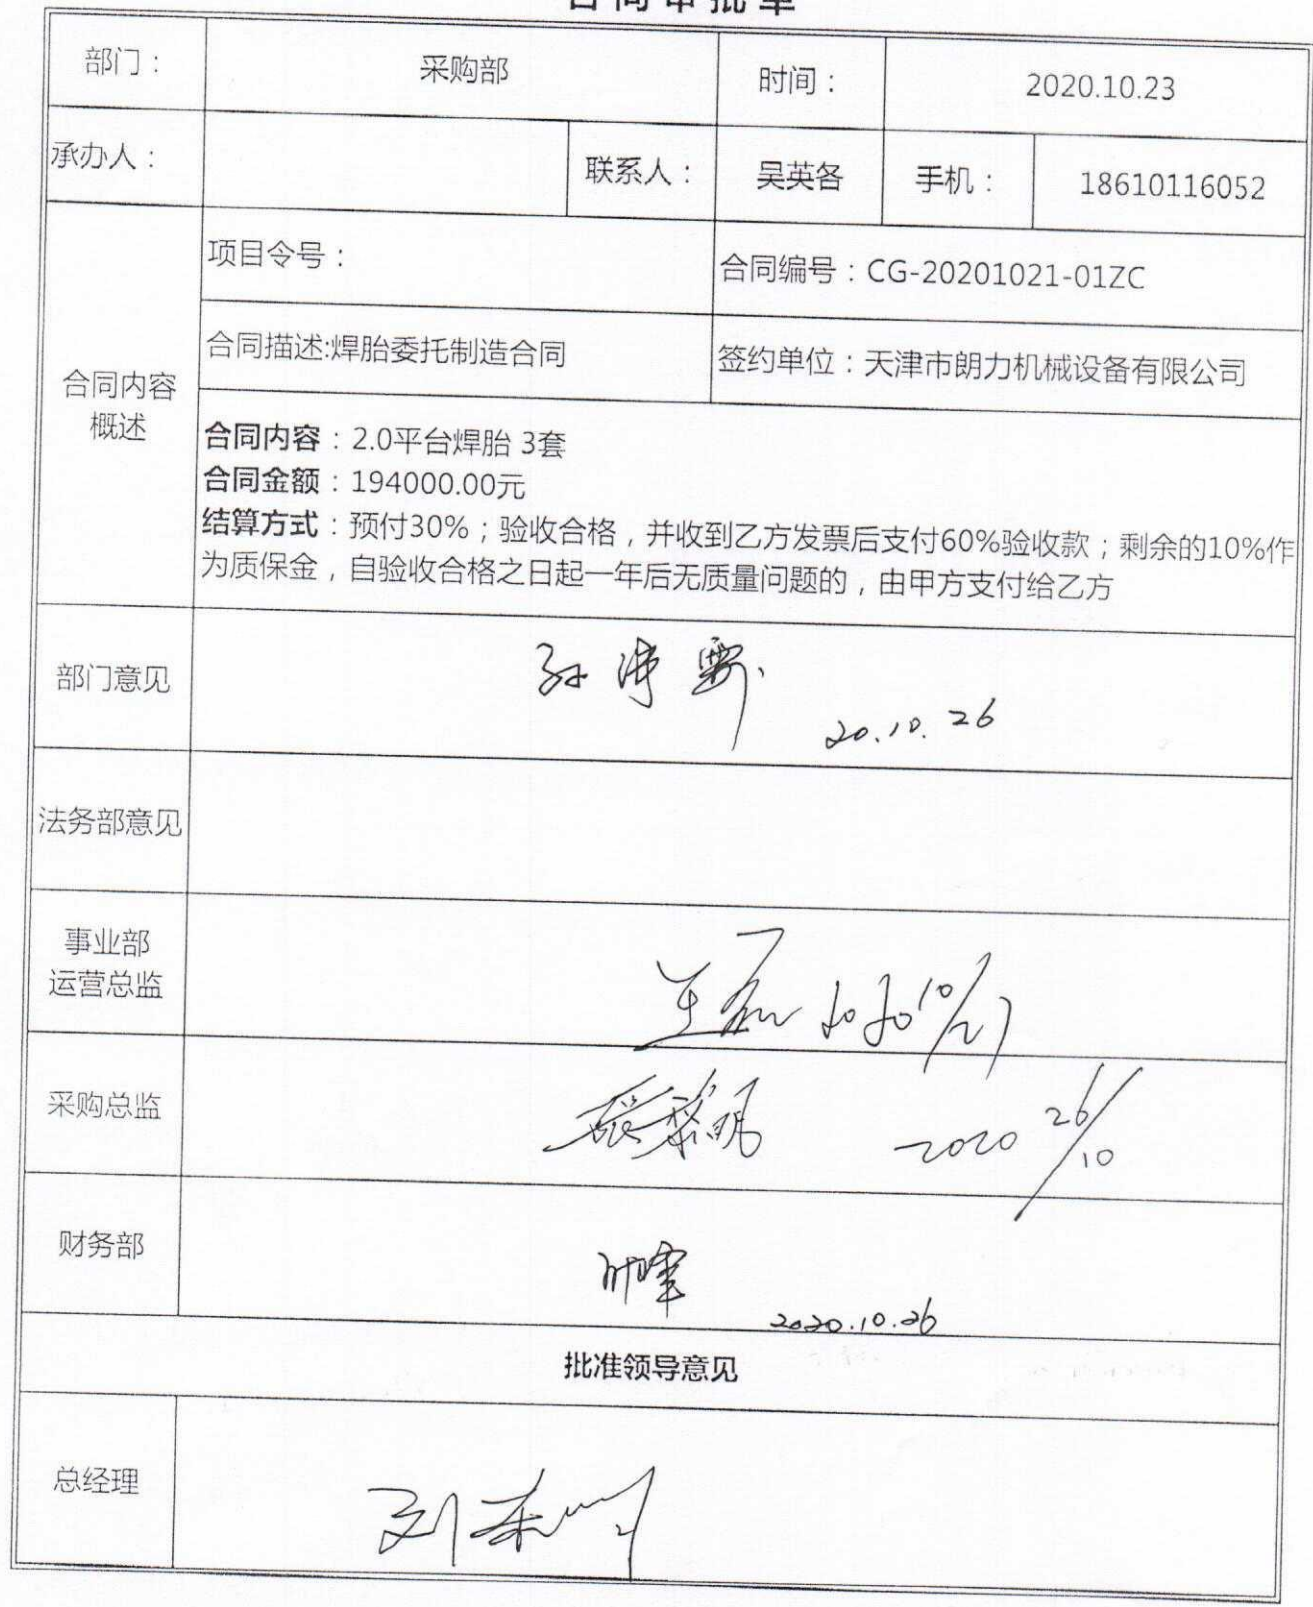 合同审批单
部门： 采购部 时间： 2020.10.23
承办人： 联系人： 吴英各 手机： 18610116052
项目令号： 合同编号：CG-20201021-01ZC
合同描述:焊胎委托制造合同 签约单位：天津市朗力机械设备有限公司
合同内容
概述
合同内容：2.0平台焊胎 3套
合同金额：194000.00元
结算方式：预付30%；验收合格，并收到乙方发票后支付60%验收款；剩余的10%作
为质保金，自验收合格之日起一年后无质量问题的，由甲方支付给乙方
部门意见
20.10.26
法务部意见
事业部
运营总监
2020 10/27
采购总监
2020 26/10
财务部
2020.10.26
批准领导意见
总经理